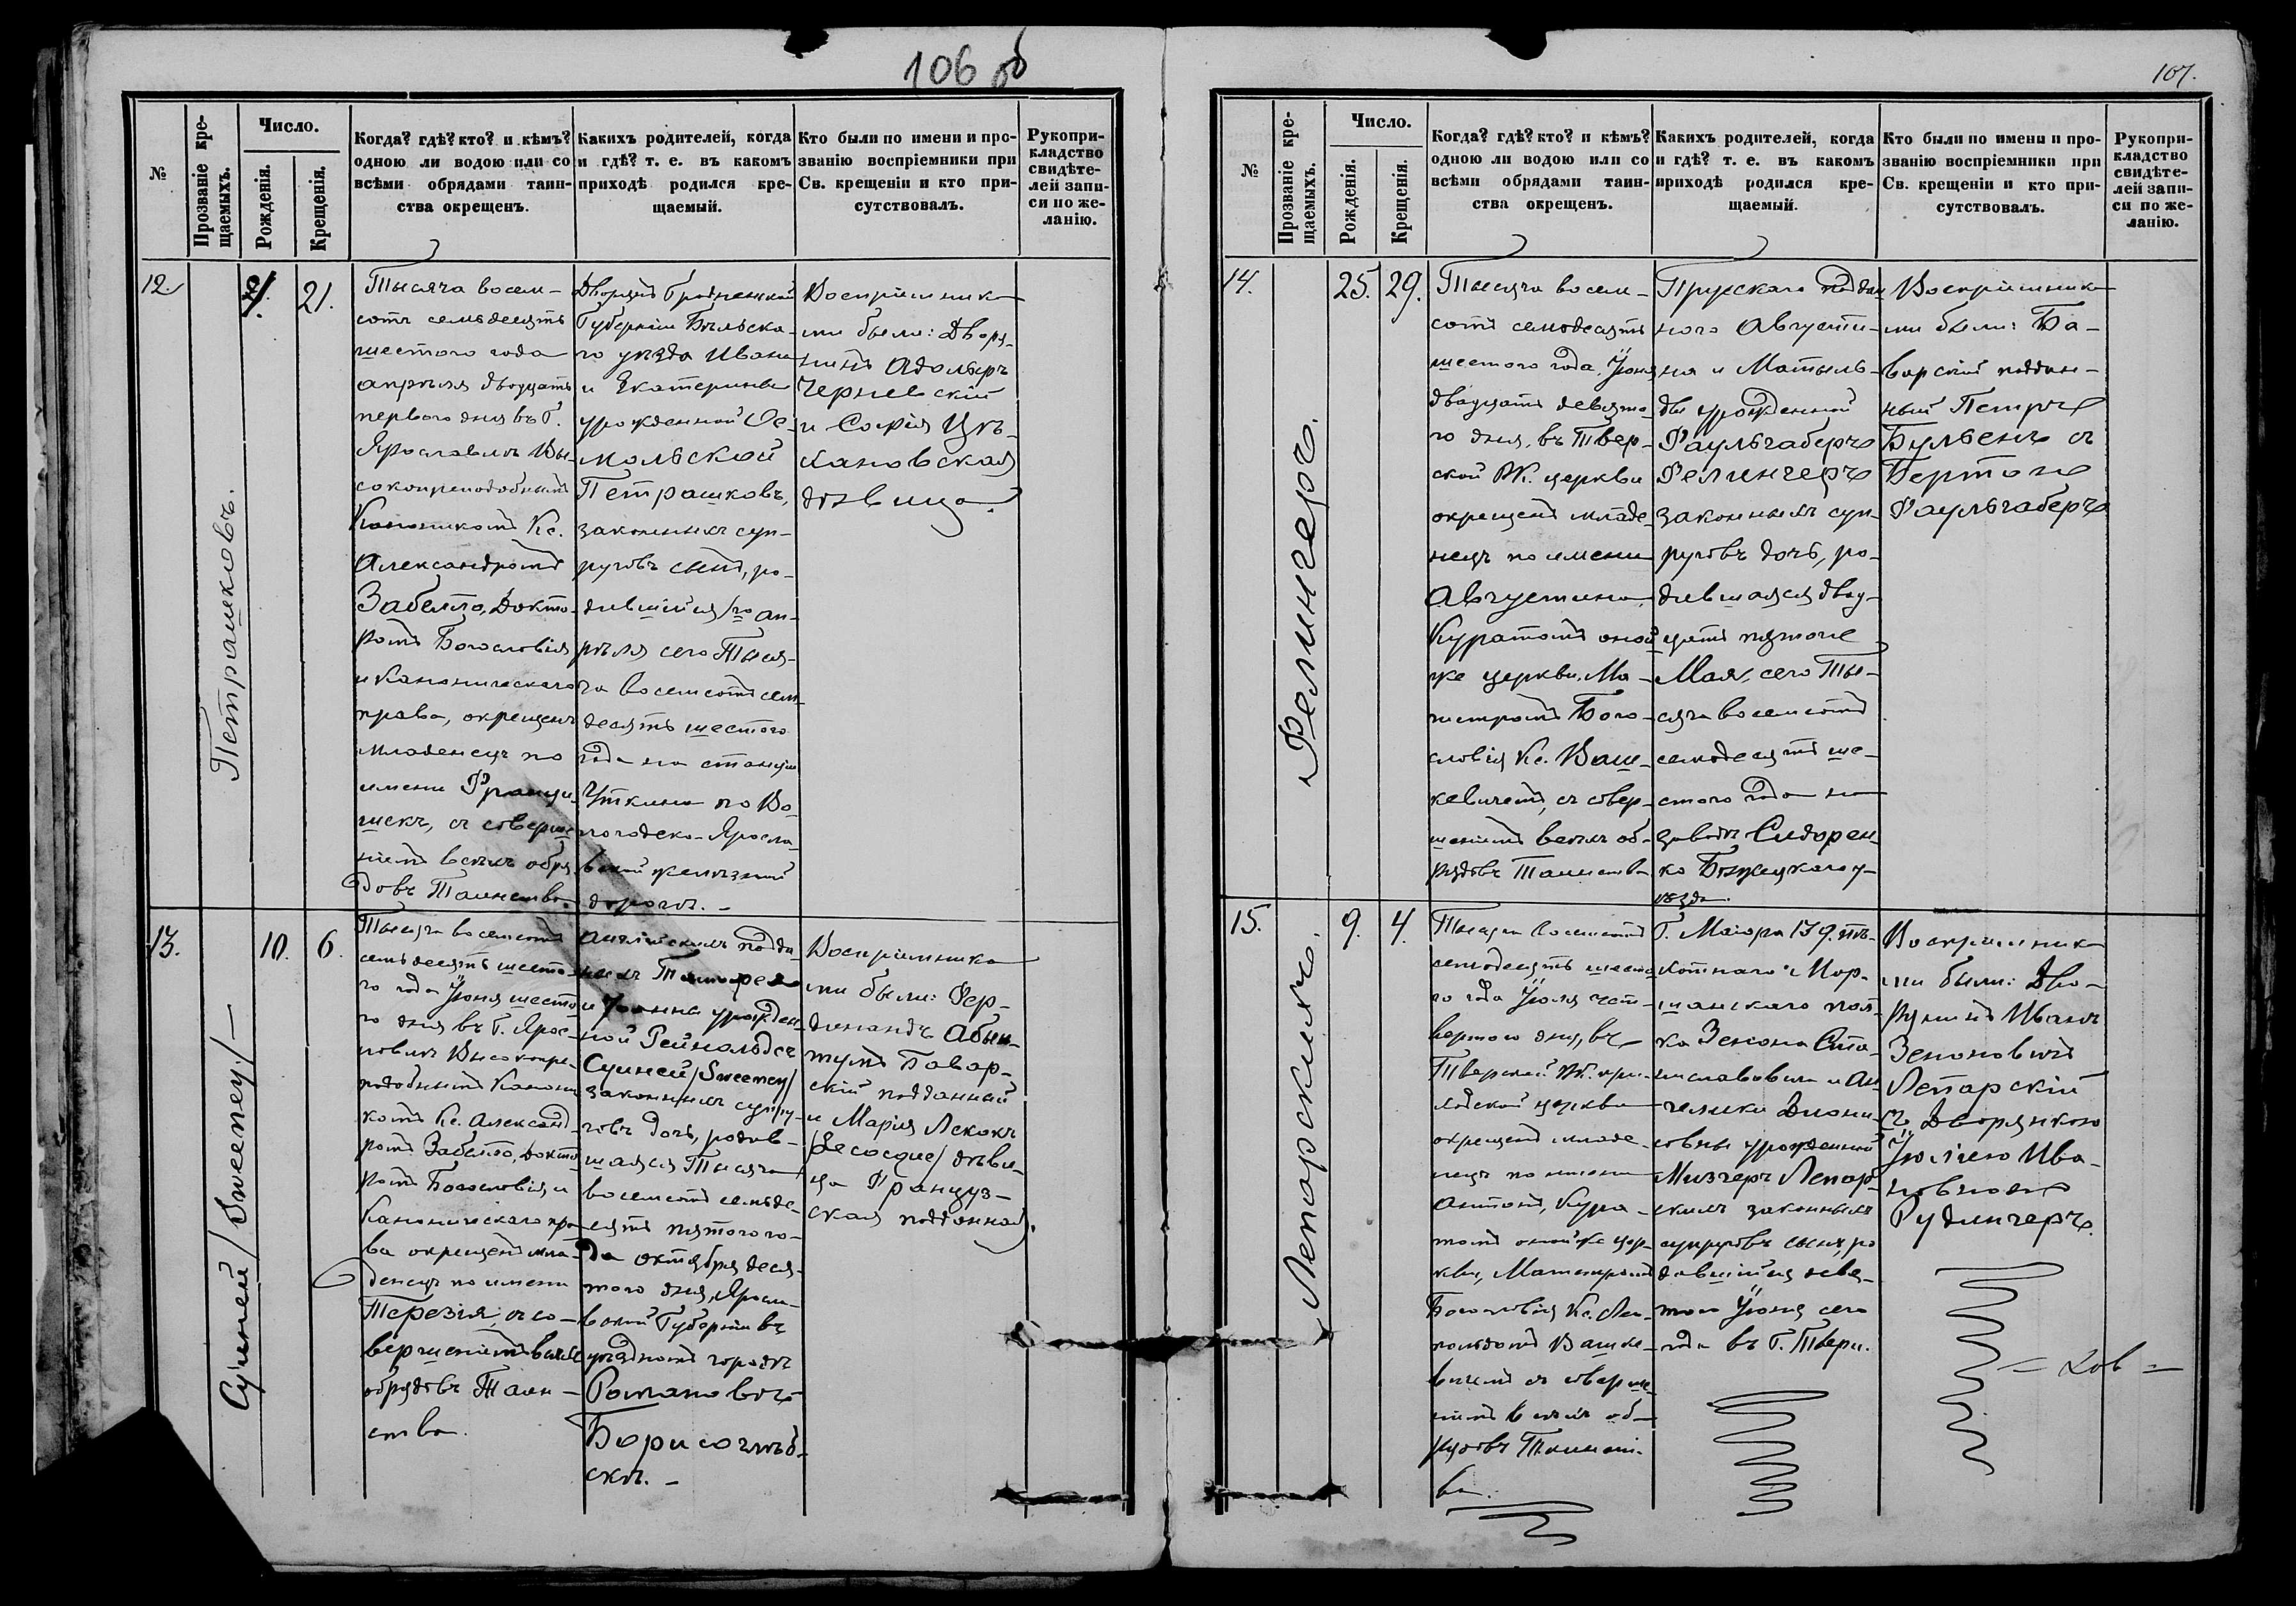 106 об
№
Прозваніе кре-
щаемыхъ.
Число.
Рожденія.
Крещенія.
Когда? гдѣ? кто? и кѣмъ?
одною ли водою или со
всѣми обрядами таин-
ства окрещенъ.
Какихъ родителей, когда
и гдѣ? т. е. въ какомъ
приходѣ родился кре-
щаемый.
Кто были по имени и про-
званію воспріемники при
Св. крещеніи и кто при-
сутствовалъ.
Рукопри-
кладство
свидѣте-
лей запи-
си по же-
ланію.
12.
Петрашковъ.
21.
Тысяча восем-
сотъ семьдесятъ
шестого года
апрѣля двадцать
перваго дня въ Г.
Ярославлѣ Вы-
сокопреподобнымъ
Каноникомъ Кс.
Александромъ
Забелло, Докто-
ромъ Богословія
и Каноническаго
права, окрещенъ
младенецъ по
имени Франци-
шекъ, съ соверше-
ніемъ всѣхъ обря
довъ Таинства.
Дворянъ Гродненской
Губерніи Бѣльска-
го уѣзда Ивана
и Екатерины
урожденной Се-
мольской
Петрашковъ,
законныхъ суп-
руговъ сынъ, ро-
дившійся 1го ап-
рѣля сего Тыся-
ча восемсотъ сем-
десятъ шестого
года на станціи
Уткино по Во-
логодско-Яросла-
вской желѣзной
дорогѣ. -
Воспріемника-
ми были: Дворя-
нинъ Адольфъ
Черневскій
и Софія Цѣ-
хановская
дѣвица.
13.
Суиней /Sweeney/ -
10.
6.
Тысяча восемсотъ
семьдесятъ шесто-
го года Іюня шесто-
го дня въ Г. Яро-
славлѣ Высокопре-
подобнымъ Канони
комъ Кс. Александ-
ромъ Забелло, Докто
ромъ Богословія и
Каноническаго пра-
ва окрещенъ мла-
денецъ по имени
Терезія, съ со-
вершеніемъ всѣхъ
обрядовъ Таин-
ства.
Англійскихъ подда
ныхъ
и Іоанны урожден-
ной Рейнольдсъ
Суиней /Sweeney/
законныхъ супру-
говъ дочь, родив-
шаяся Тысяча
восемсотъ семьде-
сятъ пятого го-
да октября деся-
того дня, Яросла-
вской Губерніи въ
уѣздномъ городѣ
Романовъ-
Борисоглѣб-
скъ. -
Воспріемника-
ми были: Фер-
динандъ
Бавар-
скій подданный
и Марія Лекокъ
/Lecocque/ дѣви-
ца Француз-
ская подданная.
107.
№
Прозваніе кре-
щаемыхъ.
Число.
Рожденія.
Крещенія.
Когда? гдѣ? кто? и кѣмъ?
одною ли водою или со
всѣми обрядами таин-
ства окрещенъ.
Какихъ родителей, когда
и гдѣ? т. е. въ какомъ
приходѣ родился кре-
щаемый.
Кто были по имени и про-
званію воспріемники при
Св. крещеніи и кто при-
сутствовалъ.
Рукопри-
кладство
свидѣте-
лей запи-
си по же-
ланію.
14.
Фелингеръ.
25.
29.
Тысяча восем-
сотъ семьдесятъ
шестого года, Іюня
двадцать девята-
го дня, въ Твер-
ской РК. церкви
окрещенъ младе-
нецъ по имени
Августина,
Куратомъ оной
же церкви, Ма-
гистромъ Бого-
словія Кс. Ваш-
кевичемъ, съ совер-
шеніемъ всѣхъ об-
рядовъ Таинства
Прусскаго поддан
ного Августи-
на и Матиль-
ды урожденной
Фаульгаберъ
Фелингеръ
законныхъ суп-
руговъ дочь, ро-
дившаяся двад-
цать пятого
Мая, сего Ты-
сяча восемсотъ
семьдесятъ ше-
стого года на
заводѣ Сидорен-
ко Бѣжецкаго у-
ѣзда.
Воспріемника-
ми были: Ба-
варскій поддан-
ный Петръ
Бульенъ съ
Бертою
Фаульгаберъ
15.
Лепарскихъ.
9.
4.
Тысяча восемсотъ
семьдесятъ шесто-
го года Іюля чет-
вертого дня, въ
Тверской РК. при-
ходской церкви
окрещенъ младе-
нецъ по имени
Антонъ, Кура-
томъ оной же цер-
кви, Магистромъ
Богословія Кс. Лео-
польдомъ Вашке-
вичемъ съ соверше-
ніемъ всѣхъ об-
рядовъ Таинст-
ва.
Г. Маіора 139. пѣ-
хотнаго Мор-
шанскаго пол-
ка Зенона Ста-
ниславовича и Ан
гелики Діони-
совны урожденной
Мизгеръ Лепар-
скихъ законныхъ
супруговъ сынъ, ро
дившійся девя-
того Іюня сего
года въ Г. Твери.
Воспріемника-
ми были: Дво-
рянинъ Иванъ
Зеноновичъ
Лепарскій
съ Дворянкою
Юліею Ива-
новною
Рудингеръ.